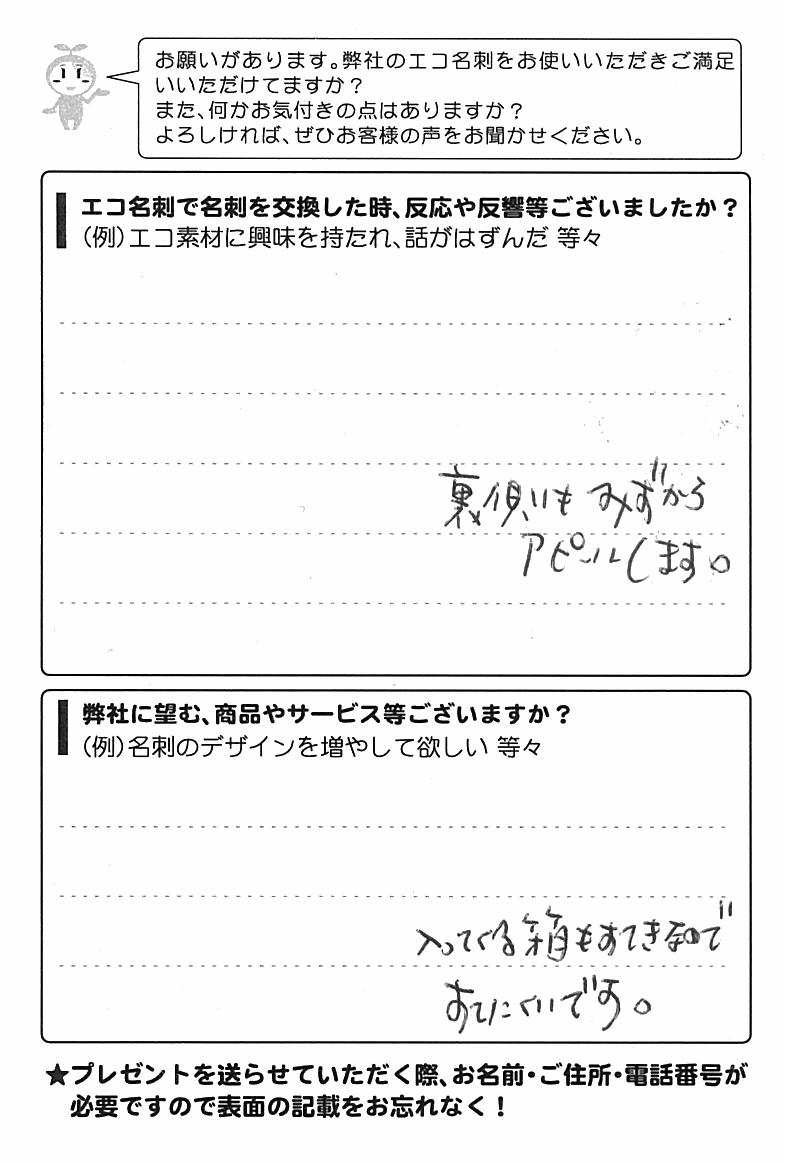 お願いがあります。弊社のエコ名刺をお使いいただきご満足
いいただけてますか？
また、何かお気付きの点はありますか？
よろしければ、ぜひお客様の声をお聞かせください。
エコ名刺で名刺を交換した時、反応や反響等ございましたか？
（例）エコ素材に興味を持たれ、話がはずんだ 等々
裏使いもみずから
アピールします。
弊社に望む、商品やサービス等ございますか？
（例）名刺のデザインを増やして欲しい 等々
入ってくる箱もすてきなので
すてにくいです。
★プレゼントを送らせていただく際、お名前・ご住所・電話番号が
必要ですので表面の記載をお忘れなく！